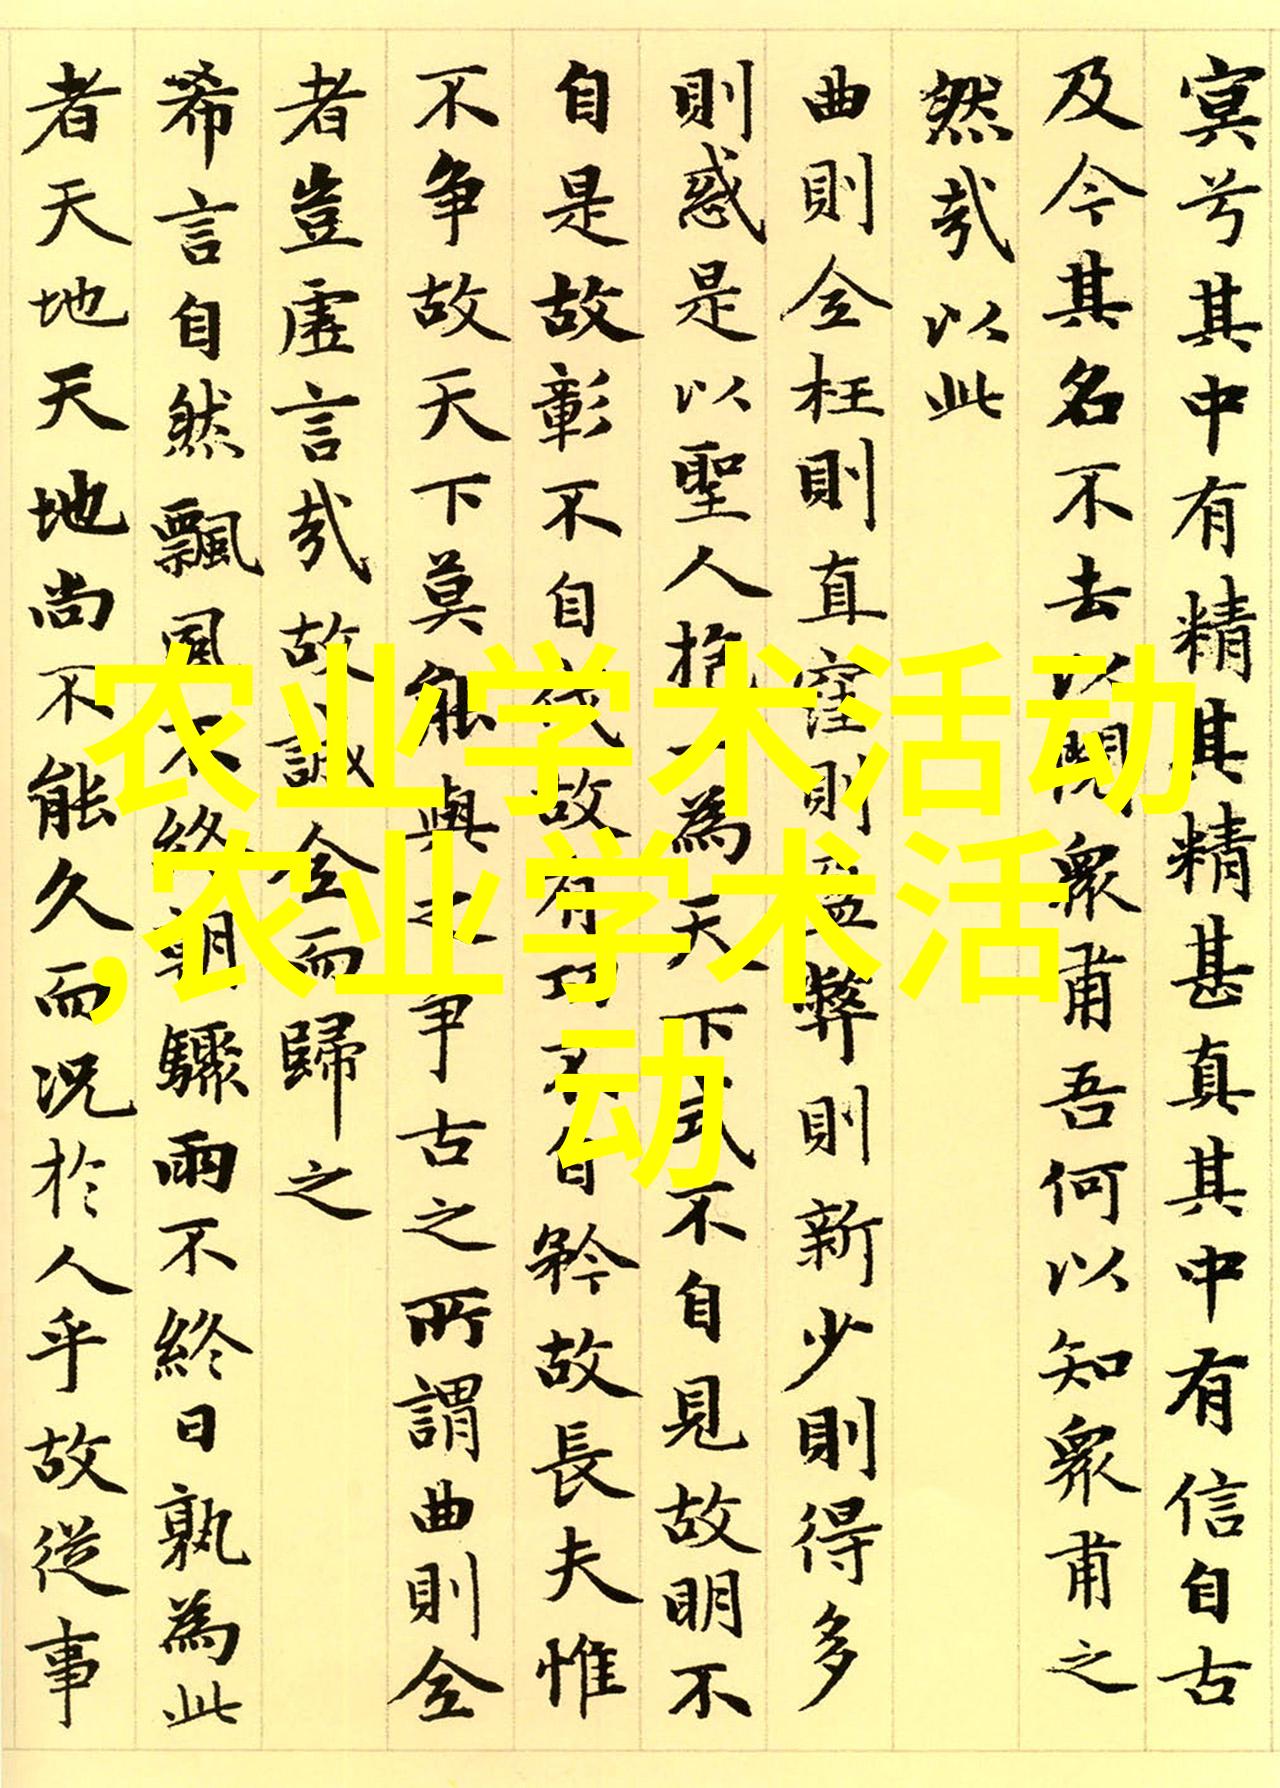 寞兮其中有精其精甚真其中有信自古
及今其名不去以閱衆甫吾何以知衆甫之
然哉以此
曲則全枉則直窪則盈弊則新少則得多
則惑是以聖人抱一為天下式不自見故明不
自是故彰不自伐故有功不自矜故長夫惟
不争故天下莫能與之争古之所謂曲則全
者豈虛言哉故誠全而歸之
希言自然飄風不終朝驟雨不終日孰為此
者天地天地尚不能久而况於人乎故從事
农业学术活动
,农业学术活
动